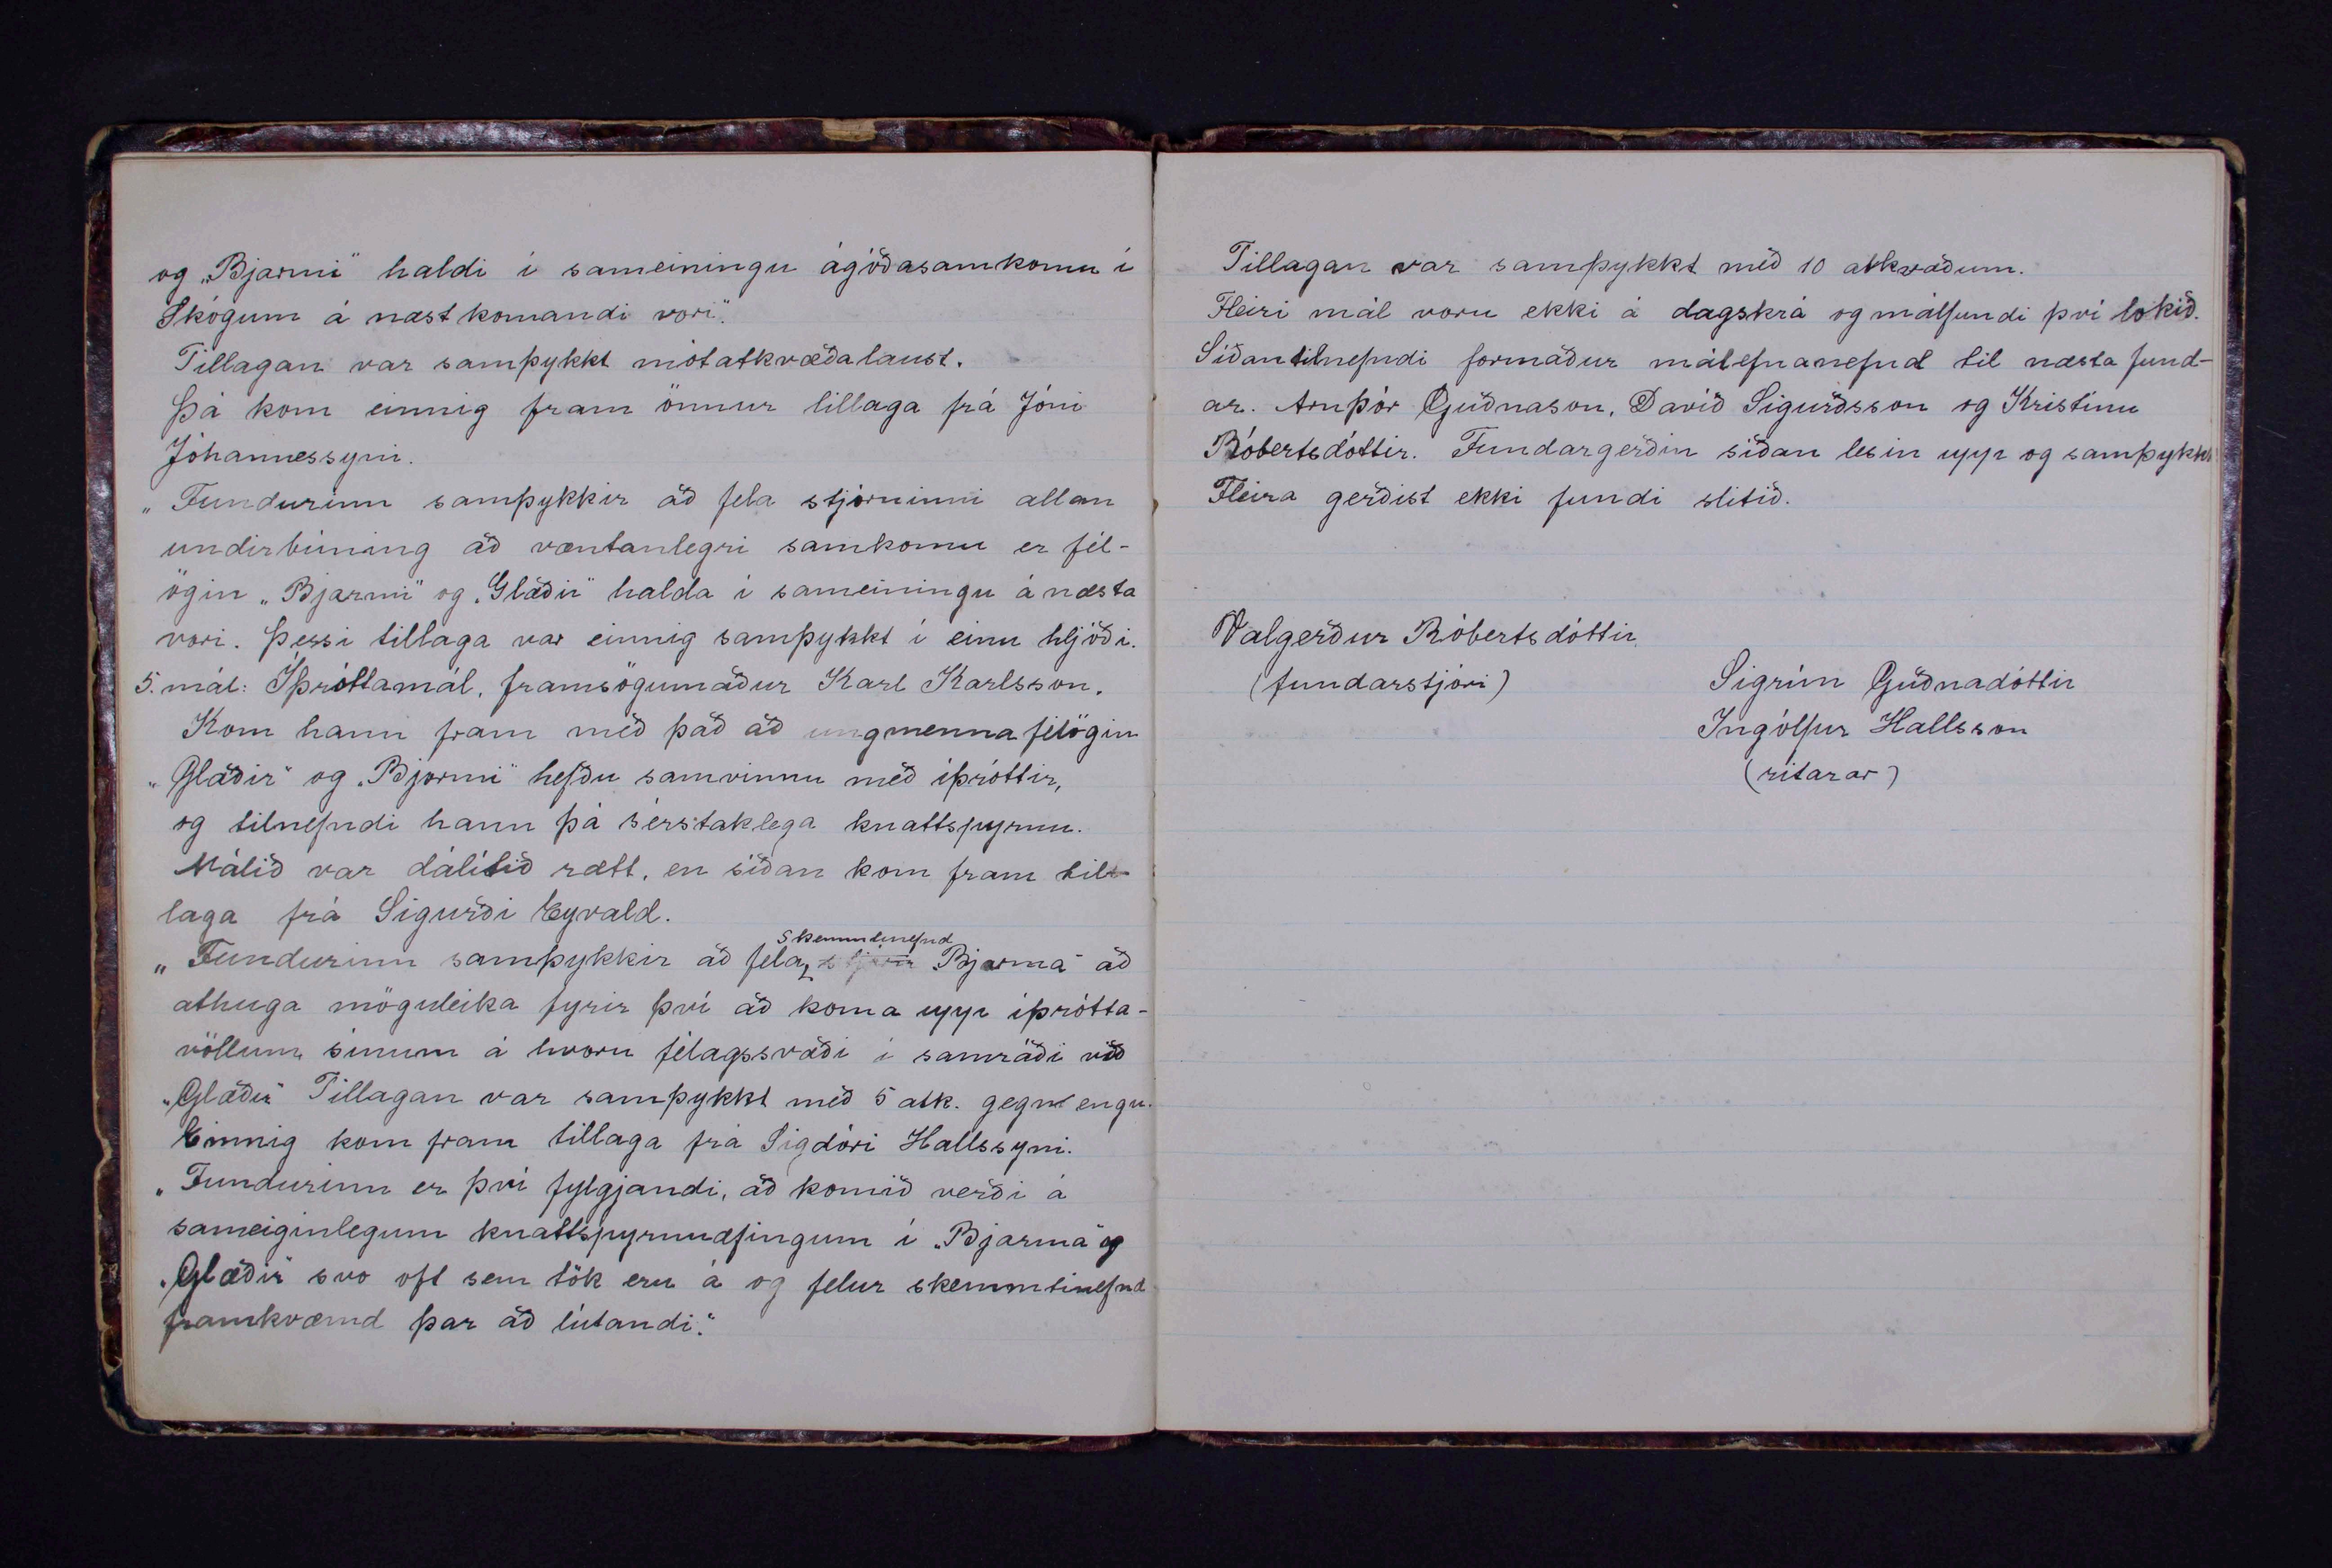 og „Bjarmi" haldi í sameiningu ágóðasamkomu í
Skógum á næstkomandi vori".
Tillagan var samþykkt mótatkvæðalaust.
Þá kom einnig fram önnur tillaga frá Jóni
Jóhannessyni.
„Fundurinn samþykkir að fela stjórninni allan
undirbúning að væntanlegri samkomu er fél-
ögin „Bjarmi" og „Glæðir" halda í sameiningu á næsta
vori. Þessi tillaga var einnig samþykkt í einu hljóði.
5. mál: Íþróttamál, framsögumaður Karl Karlsson.
Kom hann fram með það að ungmennafélögin
„Glæðir" og „Bjarmi" hefðu samvinnu með íþróttir,
og tilnefndi hann þá sérstaklega knattspyrnu.
Málið var dálítið rætt, en síðan kom fram til-
laga frá Sigurði Eyvald.
skemmtinefnd
„Fundurinn samþykkir að fela stjórn Bjarma" að
athuga möguleika fyrir því að koma upp íþrótta-
völlum sínum á hvoru félagssvæði í samráði við
„Glæði" Tillagan var samþykkt með 5 atk. gegn engu.
Einnig kom fram tillaga frá Sigdóri Hallssyni.
„Fundurinn er því fylgjandi, að komið verði á
sameiginlegum knattspyrnuæfingum í „Bjarma" og
„Glæðir" svo oft sem tök eru á og felur skemmtinefnd
framkvæmd þar að lútandi".
Tillagan var samþykkt með 10 atkvæðum.
Fleiri mál voru ekki á dagskrá og málfundi því lokið.
Síðan tilnefndi formaður málefnanefnd til næsta fund-
ar. Arnþór Guðnason, Davíð Sigurðsson og Kristínu
Róbertsdóttir. Fundargerðin síðan lesin upp og samþykkt
Fleira gerðist ekki fundi slitið.
Valgerður Róbertsdóttir
(fundarstjóri)
Sigrún Guðnadóttir
Ingólfur Hallsson
(ritarar)